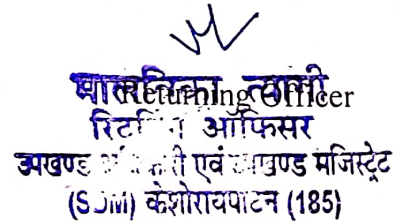 Returning Officer
रिटर्निंग ऑफिसर
उपखण्ड एवं मजिस्ट्रेट
(SDM) केशोरायपाटन (185)